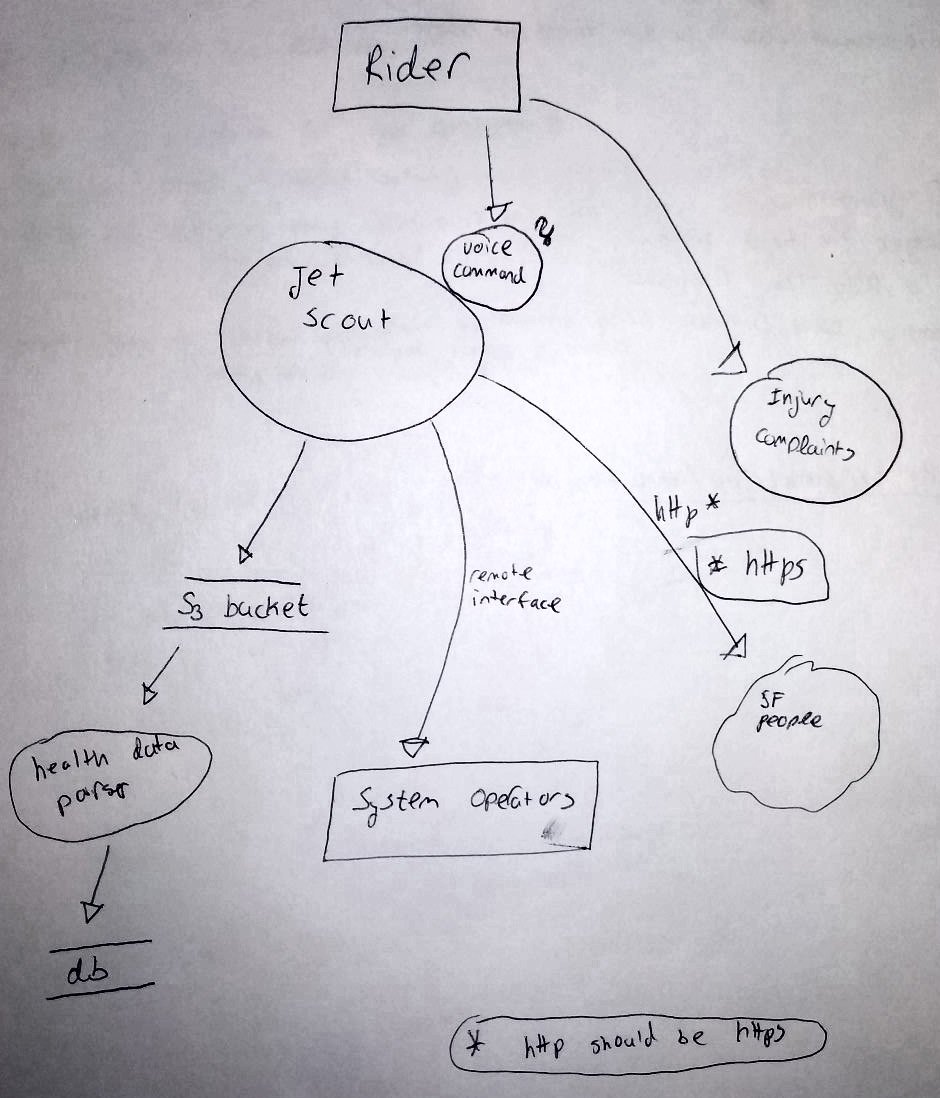 Rider
voice
command
Jet
Scout
Injury
Complaints
http *
* https
S3 bucket
remote
interface
SF
people
health data
parser
System Operators
db
* http should be https